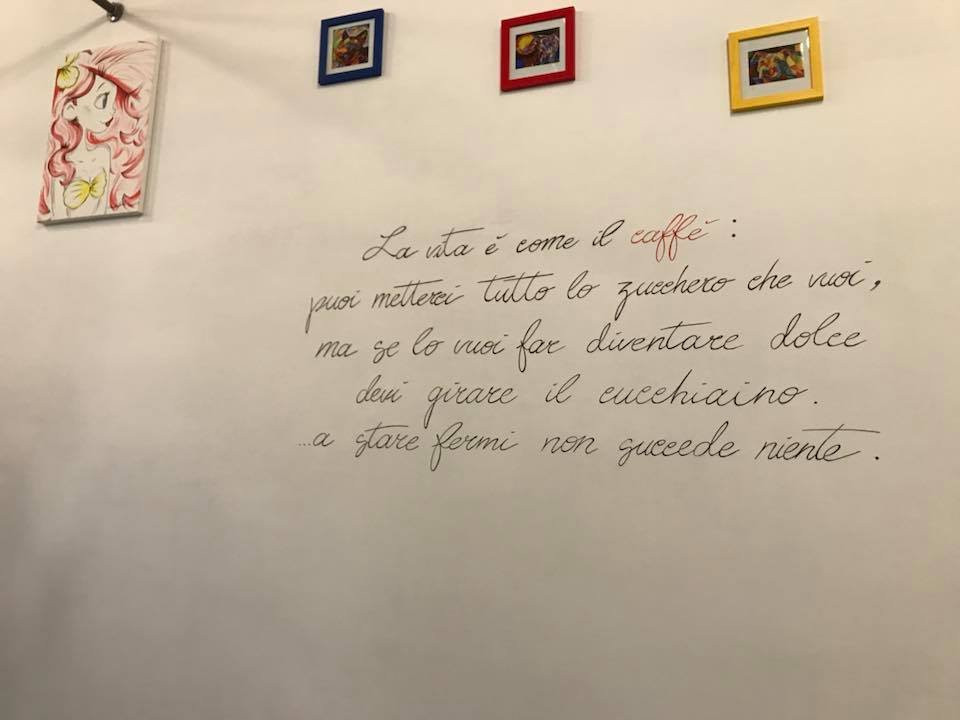 La vita è come il caffè :
puoi metterci tutto lo zucchero che vuoi,
ma se lo vuoi far diventare dolce
devi girare il cucchiaino.
...a stare fermi non succede niente.